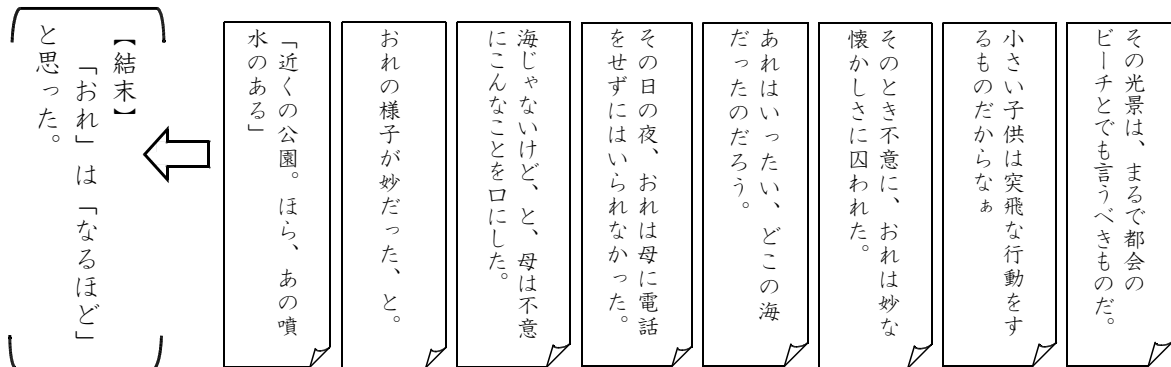 その光景は、まるで都会の
ビーチとでも言うべきものだ。
小さい子供は突飛な行動をす
るものだからなぁ
そのとき不意に、おれは妙な
懐かしさに囚われた。
あれはいったい、どこの海
だったのだろう。
その日の夜、おれは母に電話
をせずにはいられなかった。
海じゃないけど、と、母は不意
にこんなことを口にした。
おれの様子が妙だった、と。
「近くの公園。ほら、あの噴
水のある」
【結末】
「おれ」は「なるほど」
と思った。